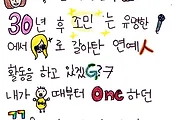 30년 후 조민는 유명한
에서 로 갈아탄 연예人
활동을 하고 있겠G? 구
내가 때부터 one 하던